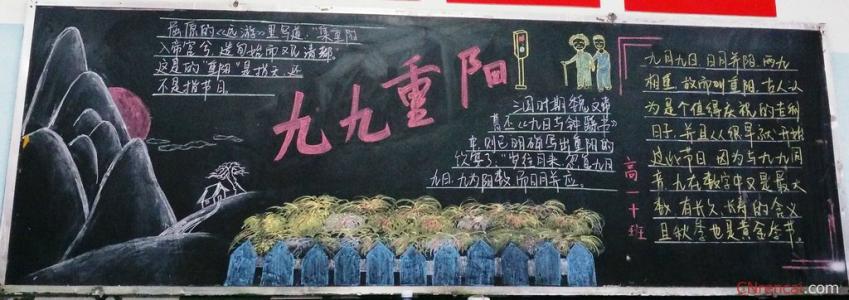 屈原的《远游》里写道:"集重阳
入帝宫兮,造旬始而观清都"
这里的"重阳"是指天,还
不是指节日。
九九重阳
三国时期魏文帝
曹丕《九日与钟繇书》
中,则已明确写出重阳的
饮宴了:"岁往月来,忽复九月
九日,九为阳数,而日月并应。
九月九日,日月并阳,两九
相重,故而叫重阳,古人认
为是个值得庆祝的吉利
日子,并且从很早就开始
过此节日,因为与九九同
音,九在数字中又是最大
数,有长久、长寿的含义
且秋季也是黄金季节。
高一十班
CNrencai.com